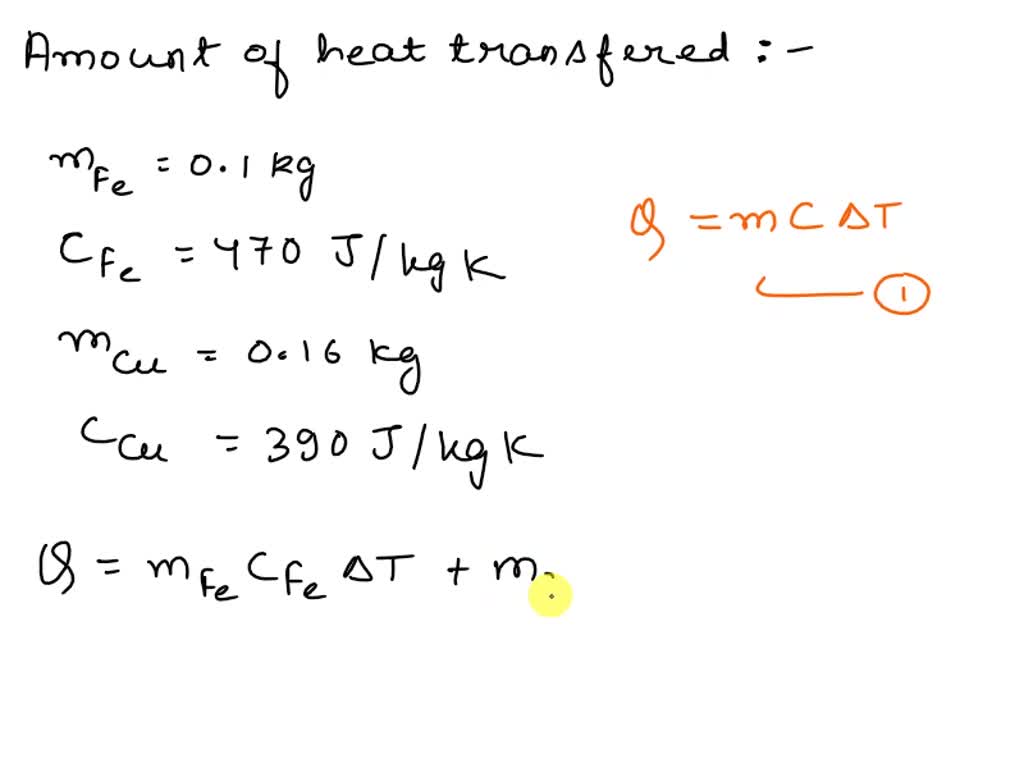 Amount of heat transfered :-
m_Fe = 0.1 kg
C_Fe = 470 J/kg K
Q = m C ΔT
①
m_Cu = 0.16 kg
C_Cu = 390 J/kg K
Q = m_Fe C_Fe ΔT + m